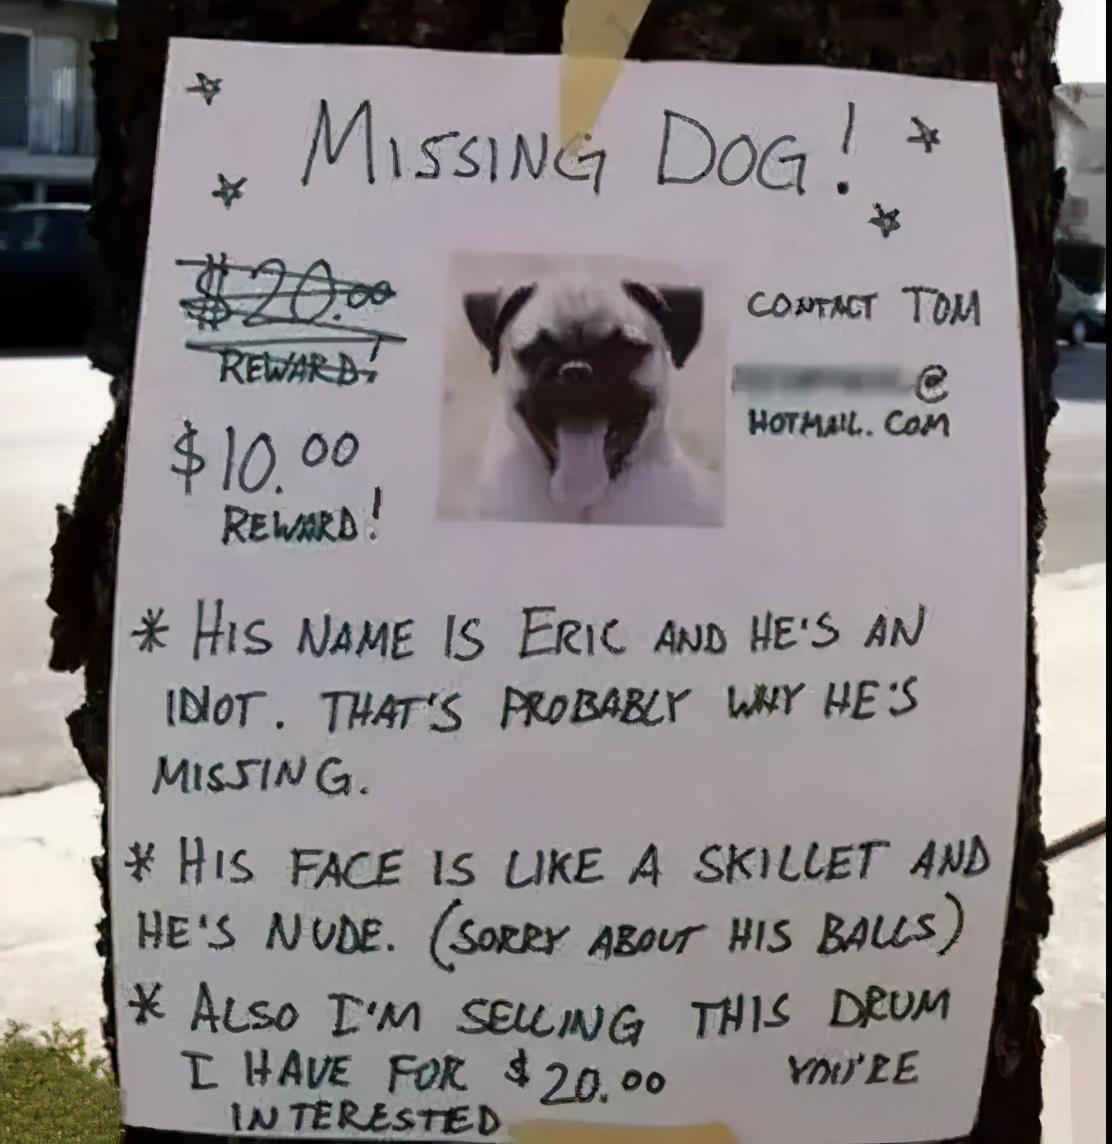 MISSING DOG!
$20.00
REWARD!
$10.00
REWARD!
CONTACT TOM
@
HOTMAIL.COM
* HIS NAME IS ERIC AND HE'S AN
IDIOT. THAT'S PROBABLY WHY HE'S
MISSING.
* HIS FACE IS LIKE A SKILLET AND
HE'S NUDE. (SORRY ABOUT HIS BALLS)
* ALSO I'M SELLING THIS DRUM
I HAVE FOR $20.00 YOU'RE
INTERESTED